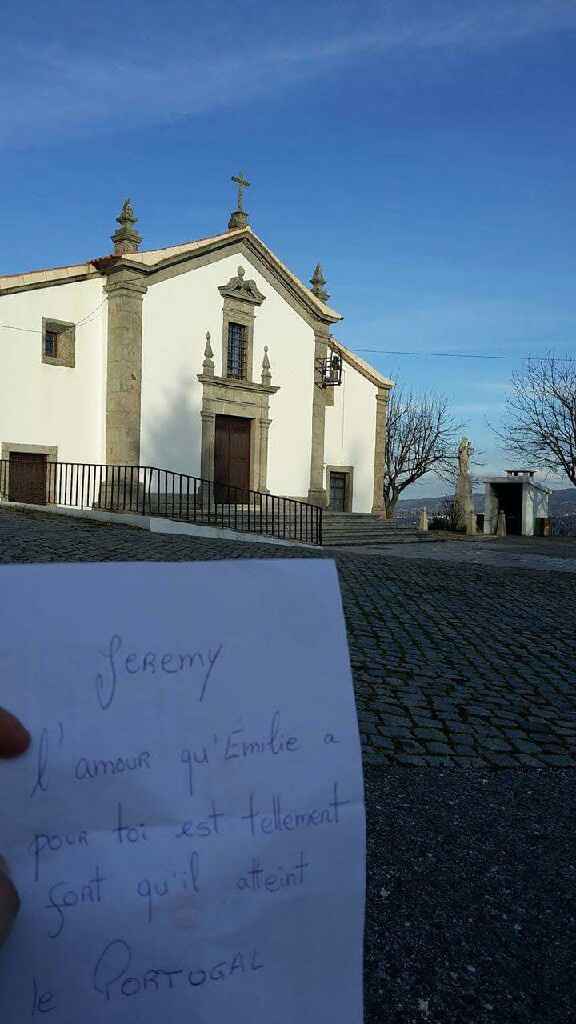 Jeremy
l'amour qu'Émilie a
pour toi est tellement
font qu'il atteint
le PORTOGAL